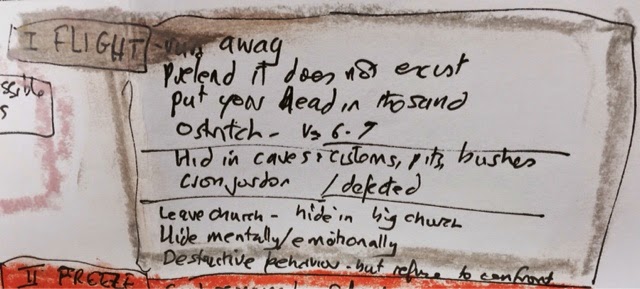 I FLIGHT - run away
Pretend it does not exist
put your head in the sand
Ostritch - Vs 6-7
Hid in caves & cisterns, pits, bushes
Cross Jordan / defected
Leave church - hide in big church
Hide mentally/emotionally
Destructive behavior - but refuse to confront
ssible
s
II FREEZE